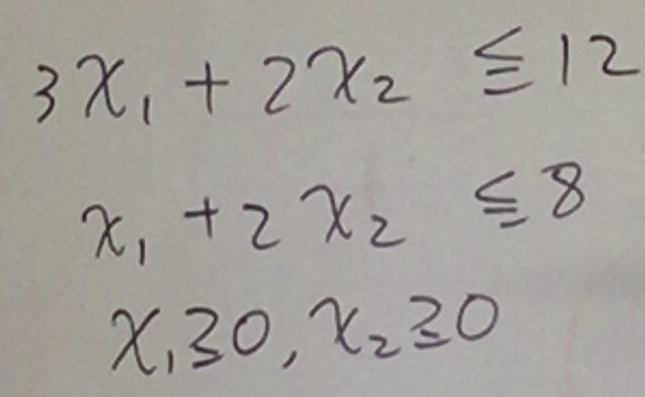 3x₁ + 2x₂ ≦ 12
x₁ + 2x₂ ≦ 8
x₁ ≧ 0, x₂ ≧ 0